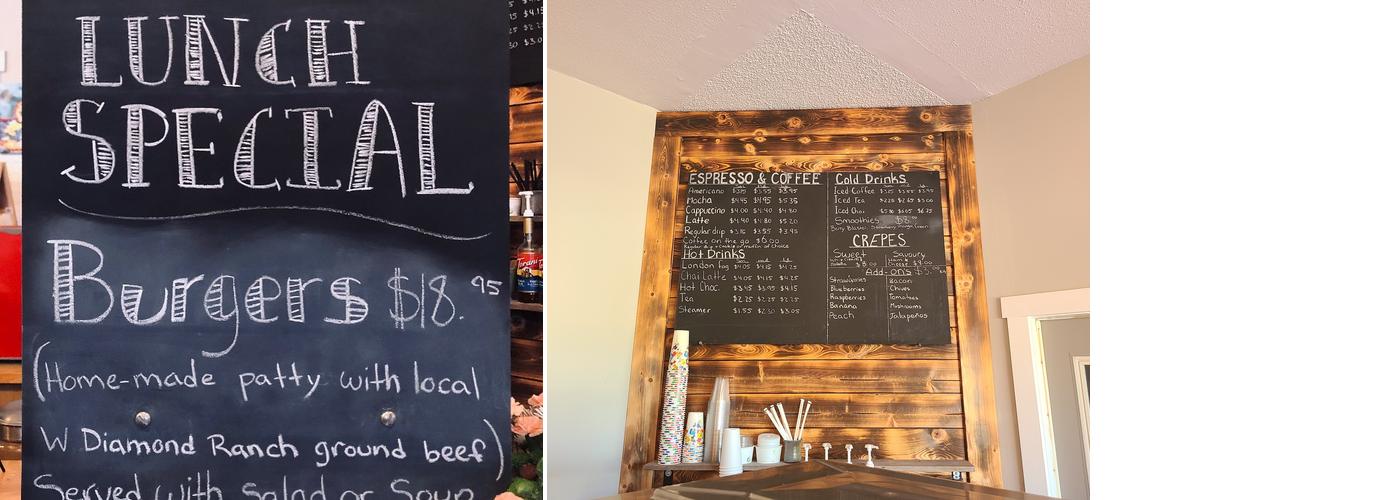 LUNCH
SPECIAL
Burgers $18.95
(Home-made patty with local
W Diamond Ranch ground beef)
Served with Salad or Soup
Torani
ESPRESSO & COFFEE
Americano $3.55 $3.95
Mocha $4.45 $4.95 $5.35
Cappuccino $4.00 $4.40 $4.80
Latte $4.40 $4.80 $5.20
Regular drip $3.55 $3.95
Coffee on the go $6.00
Regular drip + cookie or muffin of choice
Hot Drinks
London fog $4.05 $4.15 $4.25
Chai Latte $4.05 $4.15 $4.25
Hot Choc. $3.45 $3.95 $4.15
Tea $2.25 $2.25 $2.25
Steamer $1.55 $2.30 $3.05
Cold Drinks
Iced Coffee $3.55 $3.95
Iced Tea $2.25 $2.65 $3.00
Iced Chai $6.05 $6.75
Smoothies
CRÊPES
Sweet Savoury
Add-on's
Strawberries Bacon
Blueberries Chives
Raspberries Tomatoes
Banana Mushrooms
Peach Jalapeños